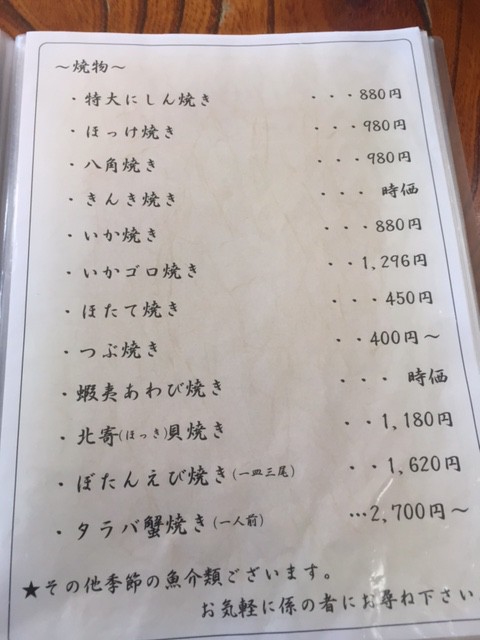 ～焼物～
・特大にしん焼き ・・・880円
・ほっけ焼き ・・・980円
・八角焼き ・・・980円
・きんき焼き ・・・ 時価
・いか焼き ・・・880円
・いかゴロ焼き ・・1,296円
・ほたて焼き ・・・450円
・つぶ焼き ・・400円～
・蝦夷あわび焼き ・・・ 時価
・北寄(ほっき)貝焼き ・・1,180円
・ぼたんえび焼き(一皿三尾) ・・1,620円
・タラバ蟹焼き(一人前) …2,700円～
★その他季節の魚介類ございます。
お気軽に係の者にお尋ね下さい